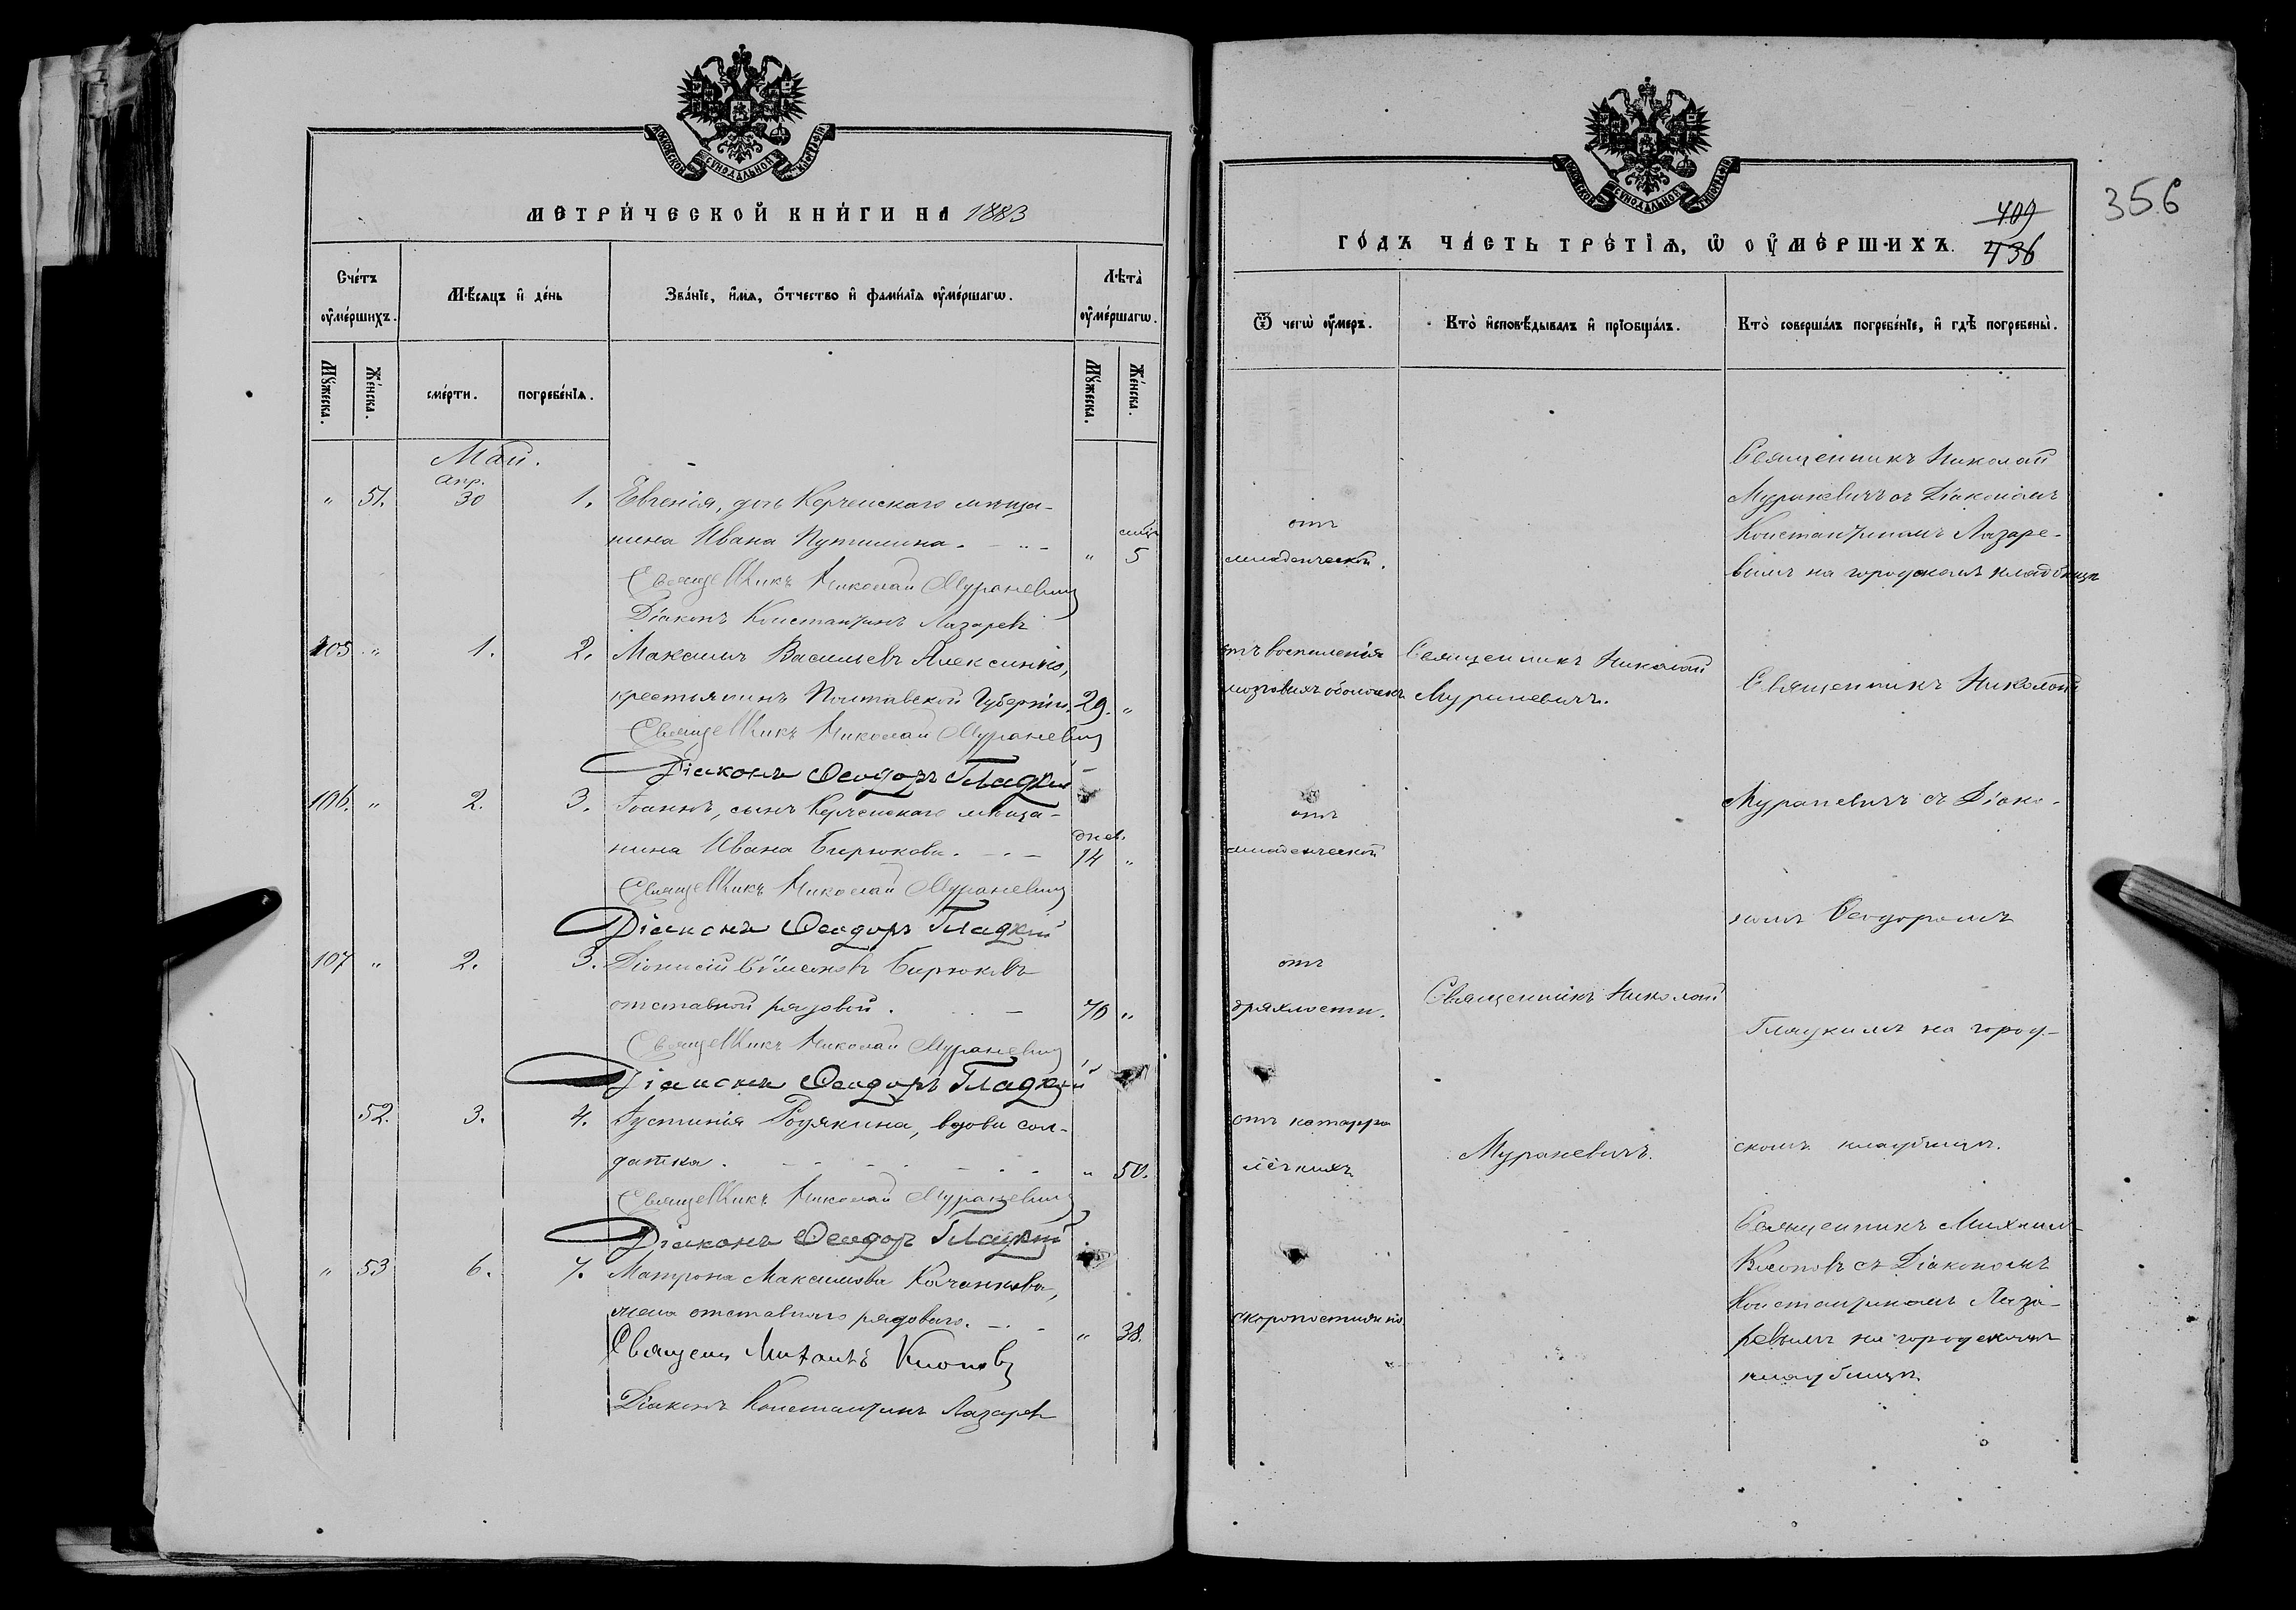 МОСКОВСКОЙ СѴНОДАЛЬНОЙ ТИПОГРАФІИ
МЕТРИ́ЧЕСКОЙ КНИ́ГИ НА 1883
Сче́тъ ᲂу҆ме́ршихъ.
Мѣ́сяцъ и҆ де́нь
Зва́нїе, и҆́мѧ, ѻ҆́тчество и҆ фами́лїѧ ᲂу҆ме́ршагѡ.
Лѣта̀ ᲂу҆ме́ршагѡ.
Мꙋ́жеска.
Же́нска.
сме́рти.
погребе́нїѧ.
Мꙋ́жеска.
Же́нска.
Май.
Апр.
" 51. 30 1. Евгенія, дочь Керченскаго мѣща-
нина Ивана Путилина. " мѣс. 5
Священникъ Николай Мураневич
Діаконъ Константинъ Лазаревъ
105 " 1. 2. Максимъ Васильевъ Алексинко,
крестьянинъ Полтавской Губерніи. 29. "
Священникъ Николай Мураневич
Діаконъ Ѳеодоръ Гладкій
106. " 2. 3. Іоаннъ, сынъ Керченскаго мѣща-
нина Ивана Бирюкова. дней. 14 "
Священникъ Николай Мураневич
Діаконъ Ѳеодоръ Гладкій
107 " 2. 3. Діонисій Сѵмеоновъ Бирюковъ
отставной рядовой. 70 "
Священникъ Николай Мураневич
Діаконъ Ѳеодоръ Гладкій
52. 3. 4. Іустинія Родякина, вдова сол-
датка. " 50.
Священникъ Николай Мураневич
Діаконъ Ѳеодоръ Гладкій
" 53 6. 7. Матрона Максимова Коченкова,
жена отставнаго рядоваго. " 38.
Священ Михаилъ Клопов
Діаконъ Константинъ Лазарев
МОСКОВСКОЙ СѴНОДАЛЬНОЙ ТИПОГРАФІИ
356
409
ГО́ДЪ ЧА́СТЬ ТРЕ́ТЇѦ, Ѡ҆ ОУ҆МЕ́РШИХЪ. 436
Ѿ чегѡ̀ ᲂу҆́меръ.
Кто̀ и҆сповѣ́дывалъ и҆ прїобща́лъ.
Кто̀ соверша́лъ погребе́нїе, и҆ гдѣ̀ погребены̀.
отъ
младенческой.
Священникъ Николай
Мураневичъ съ Діакономъ
Константиномъ Лазаре-
вымъ на городскомъ кладбищѣ
отъ воспаленія
мозговыхъ оболочекъ
Священникъ Николай
Мураневичъ.
Священникъ Николай
отъ
младенческой
Мураневичъ съ Діако-
номъ Ѳеодоромъ
отъ
дряхлости.
Священникъ Николай
Гладкимъ на город-
отъ катарра
лёгкихъ
Мураневичъ.
скомъ кладбищѣ.
скоропостижно
Священникъ Михаилъ
Клоповъ съ Діакономъ
Константиномъ Лаза-
ревымъ на городскомъ
кладбищѣ